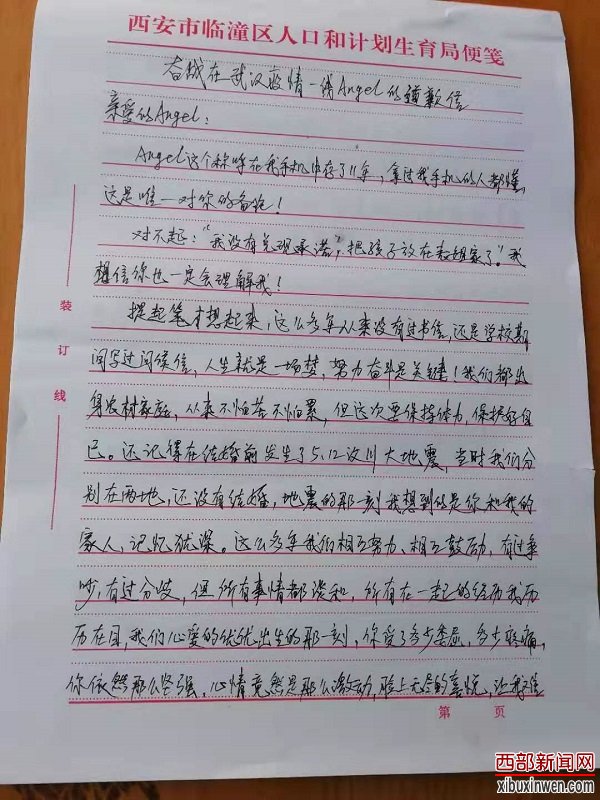 西安市临潼区人口和计划生育局便笺
奋战在武汉疫情一线Angel的道歉信
亲爱的Angel:
Angel这个称呼在我手机中存了11年，拿过我手机的人都懂，
这是唯一对你的备注！
对不起：“我没有兑现承诺，把孩子放在教姐家了”。我
想信你也一定会理解我！
提起笔才想起来，这么多年从来没有过书信，还是学校期
间写过问候信，人生就是一场梦，努力奋斗是关键！我们都出
身农村家庭，从来不怕苦不怕累，但这次要保持体力，保护好自
己。还记得在结婚前发生了5.12汶川大地震，当时我们分
别在两地，还没有结婚，地震的那一刻我想到的是你和我的
家人，记忆犹深。这么多年我们相互努力、相互鼓励，有过争
吵，有过分歧，但所有事情都谈和，所有在一起的经历我历
历在目，我们心爱的优优出生的那一刻，你受了多少委屈，多少疼痛，
你依然那么坚强，心情竟然是那么激动，脸上无尽的喜悦，让我
装
订
线
第 页
西部新闻网
xibuxinwen.com